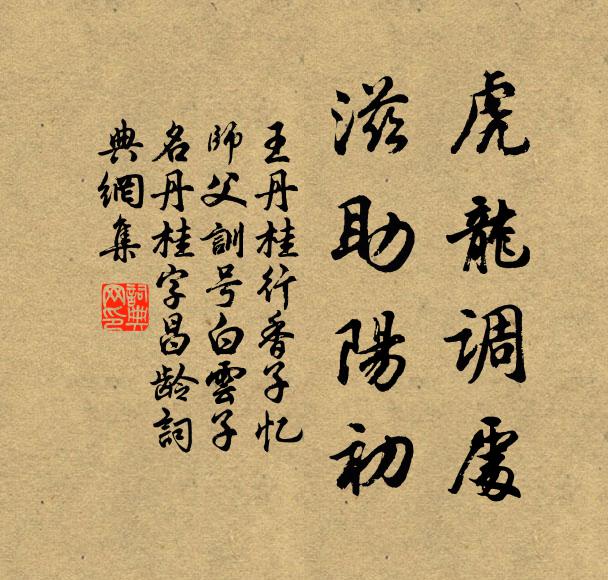 虎龍調處
滋助陽初
王丹桂行香子忆
師父訓号白雲子
名丹桂字昌龄詞
典網集
詞典網印